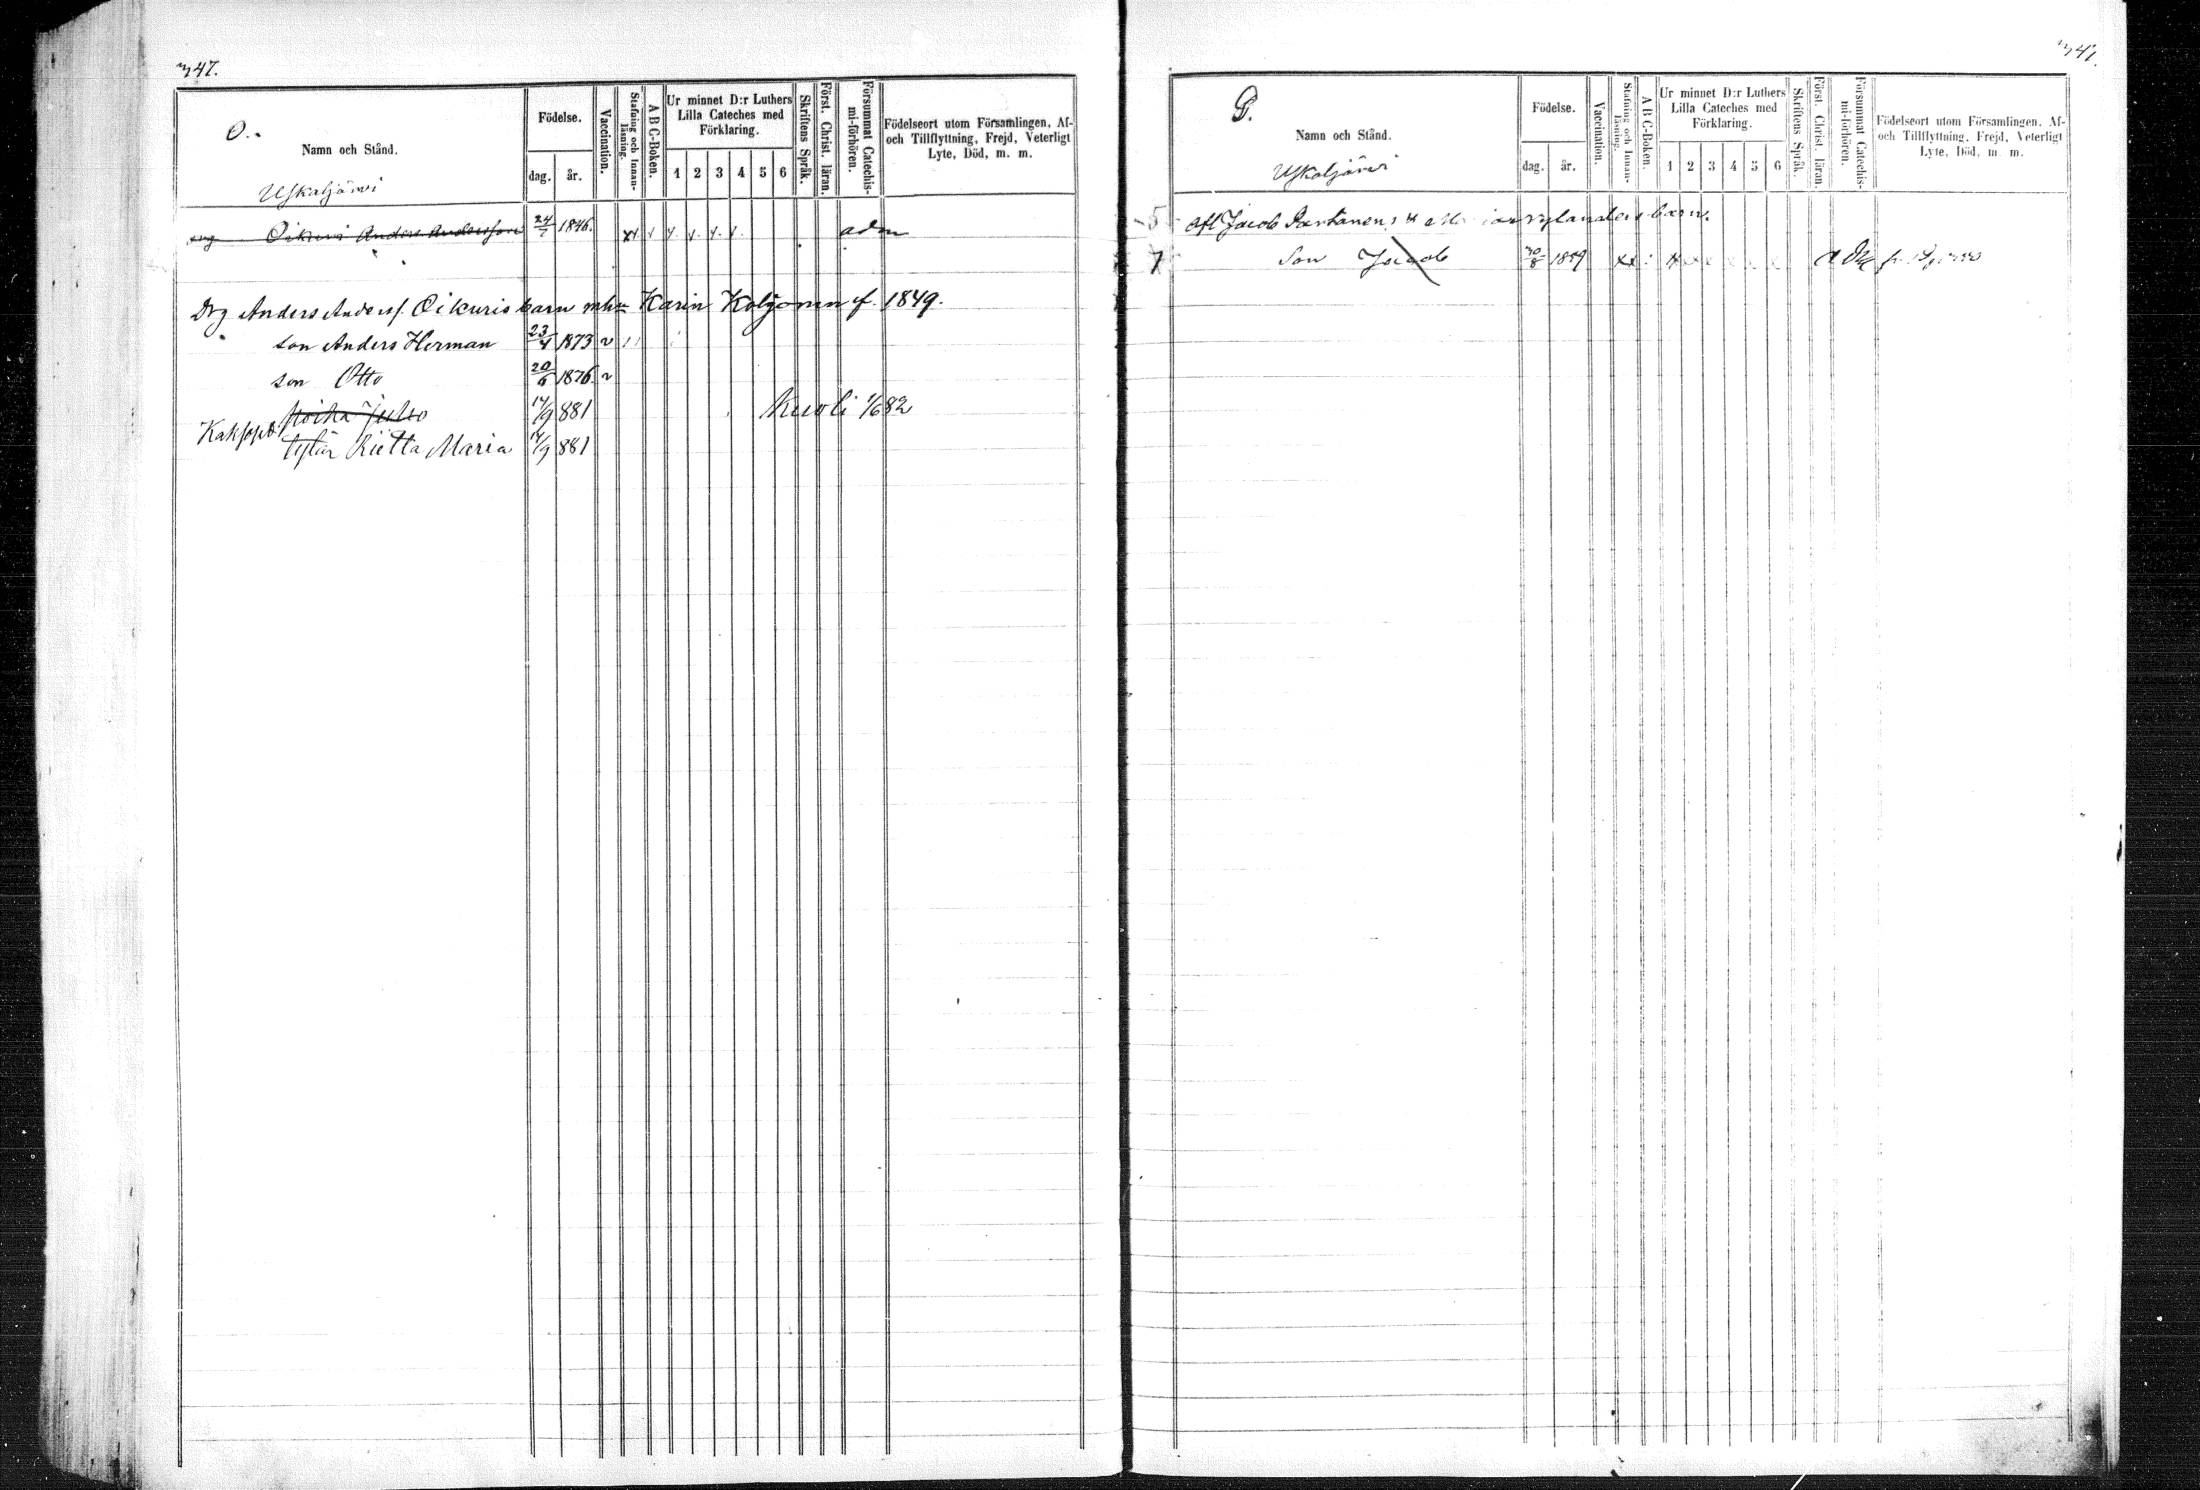 347.
O.
Namn och Stånd.
Uskaljärvi
Födelse.
dag. år.
Vaccination.
Stafning och Innan-läsning.
A B C-Boken.
Ur minnet D:r Luthers Lilla Cateches med Förklaring.
1 2 3 4 5 6
Skriftens Språk.
Först. Christ. läran.
Försummat Catechis-mi-förhören.
Födelseort utom Församlingen, Af-
och Tillflyttning, Frejd, Veterligt
Lyte, Död, m. m.
drg Oikuri Anders Andersson 24/1 1846. adm
Drg Anders Anderss. Oikuris barn mhu Karin f. 1849.
son Anders Herman 23/4 1873 v
son Otto 20/6 1876 v
Poika Juho 14/9 881 Kuoli 1/6 82
Kaksoset
tytär Rietta Maria 14/9 881
347.
P.
Namn och Stånd.
Uskaljärvi
Födelse.
dag. år.
Vaccination.
Stafning och Innan-läsning.
A B C-Boken.
Ur minnet D:r Luthers Lilla Cateches med Förklaring.
1 2 3 4 5 6
Skriftens Språk.
Först. Christ. läran.
Försummat Catechis-mi-förhören.
Födelseort utom Församlingen, Af-
och Tillflyttning, Frejd, Veterligt
Lyte, Död, m. m.
Jacob Partanens barn.
7 Son Jacob 30/8 1859